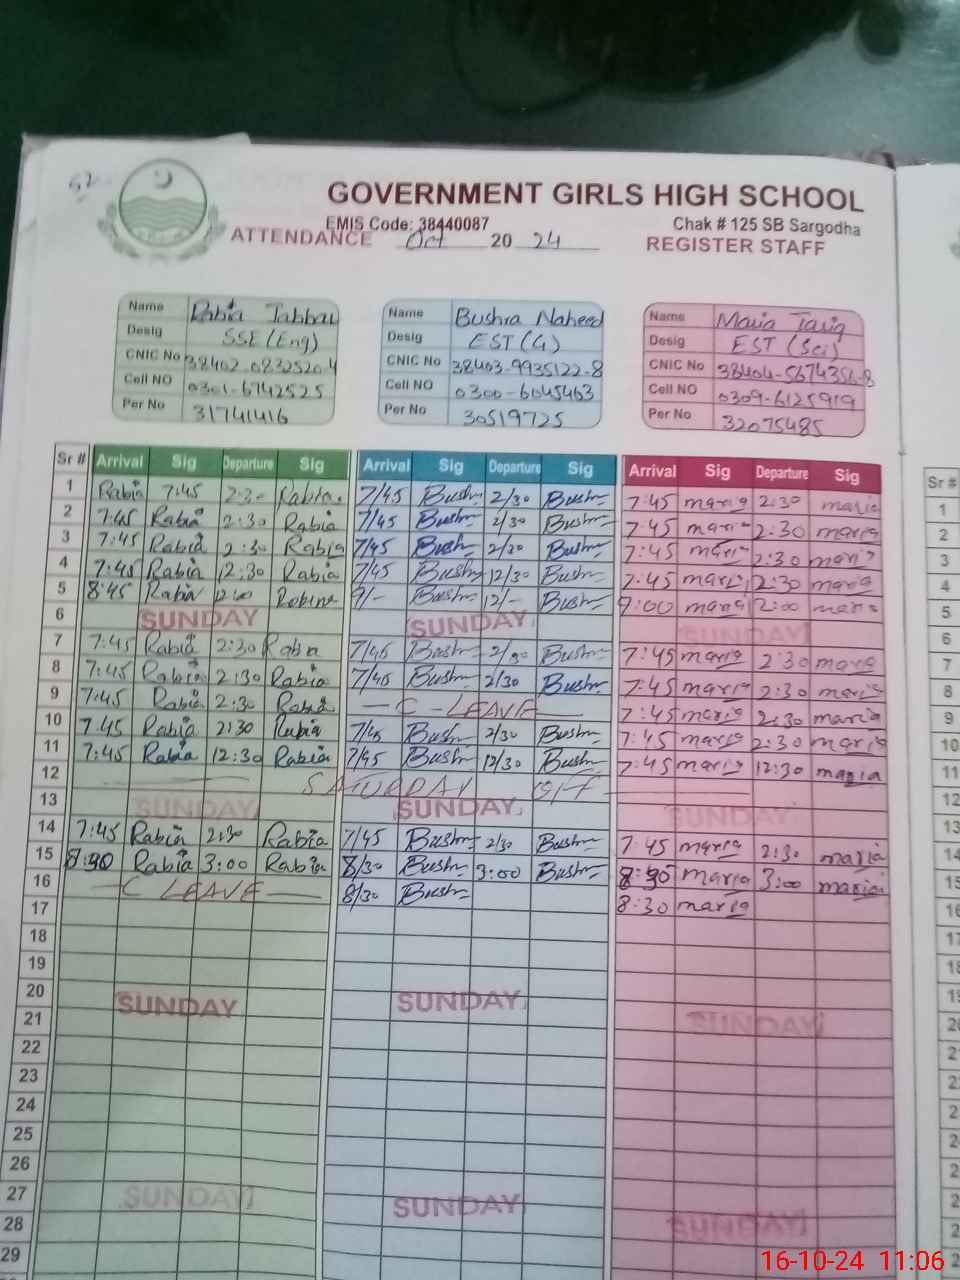 52
GOVERNMENT GIRLS HIGH SCHOOL
EMIS Code: 38440087 Chak # 125 SB Sargodha
ATTENDANCE Oct 20 24 REGISTER STAFF
Name Rabia Jabbar Name Bushra Naheed Name Maria Tariq
Desig SSE (Eng) Desig EST (G) Desig EST (Sci)
CNIC No 38402-0832520-4 CNIC No 38403-9935122-8 CNIC No 38404-5674356-8
Cell NO 0301-6742525 Cell NO 0300-6045463 Cell NO 0309-6125919
Per No 31741416 Per No 30519725 Per No 32075485
Sr # Arrival Sig Departure Sig Arrival Sig Departure Sig Arrival Sig Departure Sig Sr #
1 Rabia 7:45 2:30 Rabia 7/45 Bush 2/30 Bush 7:45 maria 2:30 maria 1
2 7:45 Rabia 2:30 Rabia 7/45 Bush 2/30 Bush 7:45 maria 2:30 maria 2
3 7:45 Rabia 2:30 Rabia 7/45 Bush 2/30 Bush 7:45 maria 2:30 maria 3
4 7:45 Rabia 12:30 Rabia 7/45 Bush 12/30 Bush 7:45 maria 12:30 maria 4
5 8:45 Rabia 12:00 9/- Bush 12/- Bush 9:00 maria 12:00 maria 5
6 SUNDAY SUNDAY SUNDAY 6
7 7:45 Rabia 2:30 Rabia 7/45 Bush 2/30 Bush 7:45 maria 2:30 maria 7
8 7:45 Rabia 2:30 Rabia 7/45 Bush 2/30 Bush 7:45 maria 2:30 maria 8
9 7:45 Rabia 2:30 Rabia — C - LEAVE — 7:45 maria 2:30 maria 9
10 7:45 Rabia 2:30 Rabia 7/45 Bush 2/30 Bush 7:45 maria 2:30 maria 10
11 7:45 Rabia 12:30 Rabia 7/45 Bush 12/30 Bush 7:45 maria 12:30 maria 11
12 SATURDAY OFF 12
13 SUNDAY SUNDAY SUNDAY 13
14 7:45 Rabia 2:30 Rabia 7/45 Bush 2/30 Bush 7:45 maria 2:30 maria 14
15 8:30 Rabia 3:00 Rabia 8/30 Bush 3:00 Bush 8:30 maria 3:00 maria 15
16 — C LEAVE — 8/30 Bush 8:30 maria 16
17 17
18 18
19
20 SUNDAY SUNDAY SUNDAY
21
22
23
24
25
26
27 SUNDAY SUNDAY SUNDAY
28
29
16-10-24 11:06